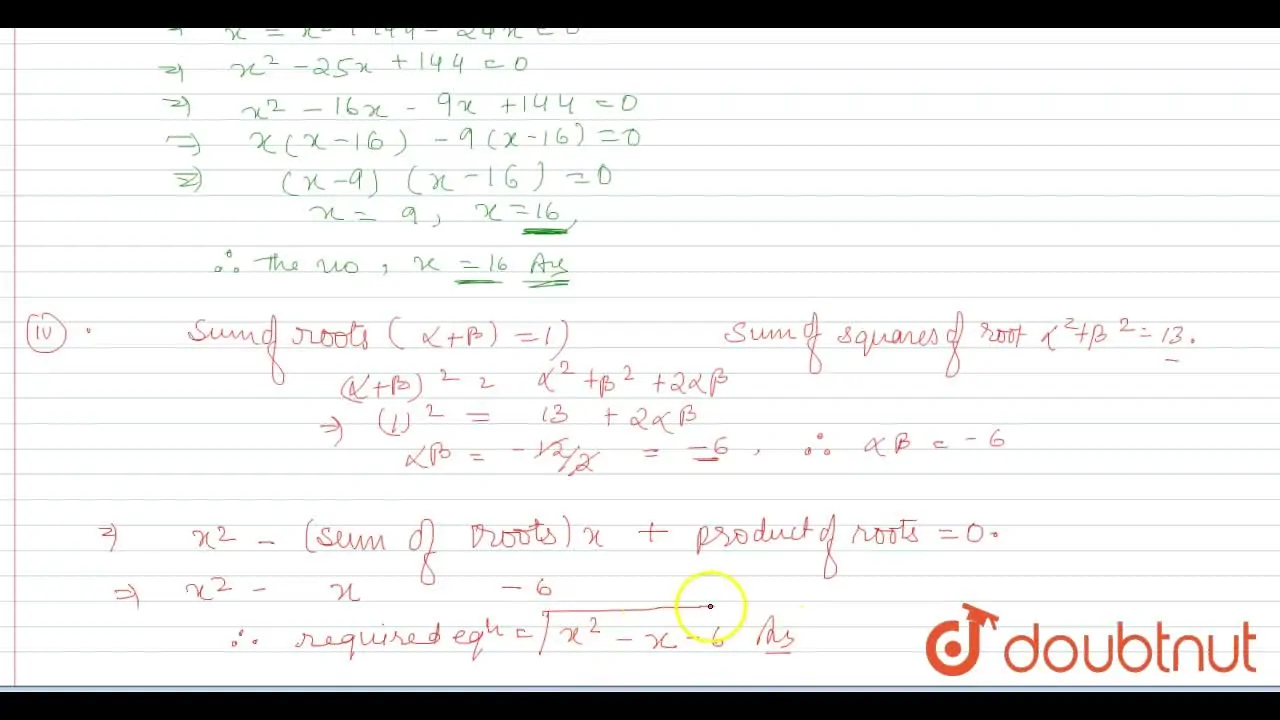 ⇒ x² - 25x + 144 = 0
⇒ x² - 16x - 9x + 144 = 0
⇒ x(x-16) - 9(x-16) = 0
⇒ (x-9) (x-16) = 0
x = 9, x = 16,
∴ The no, x = 16 Ans
(iv) . Sum of roots (α+β) = 1) Sum of squares of root α²+β² = 13.
(α+β)² = α² + β² + 2αβ
⇒ (1)² = 13 + 2αβ
αβ = -12/2 = -6, ∴ αβ = -6
⇒ x² - (Sum of roots)x + product of roots = 0.
⇒ x² - x - 6
∴ required eqⁿ = x² - x - 6 Ans
doubtnut